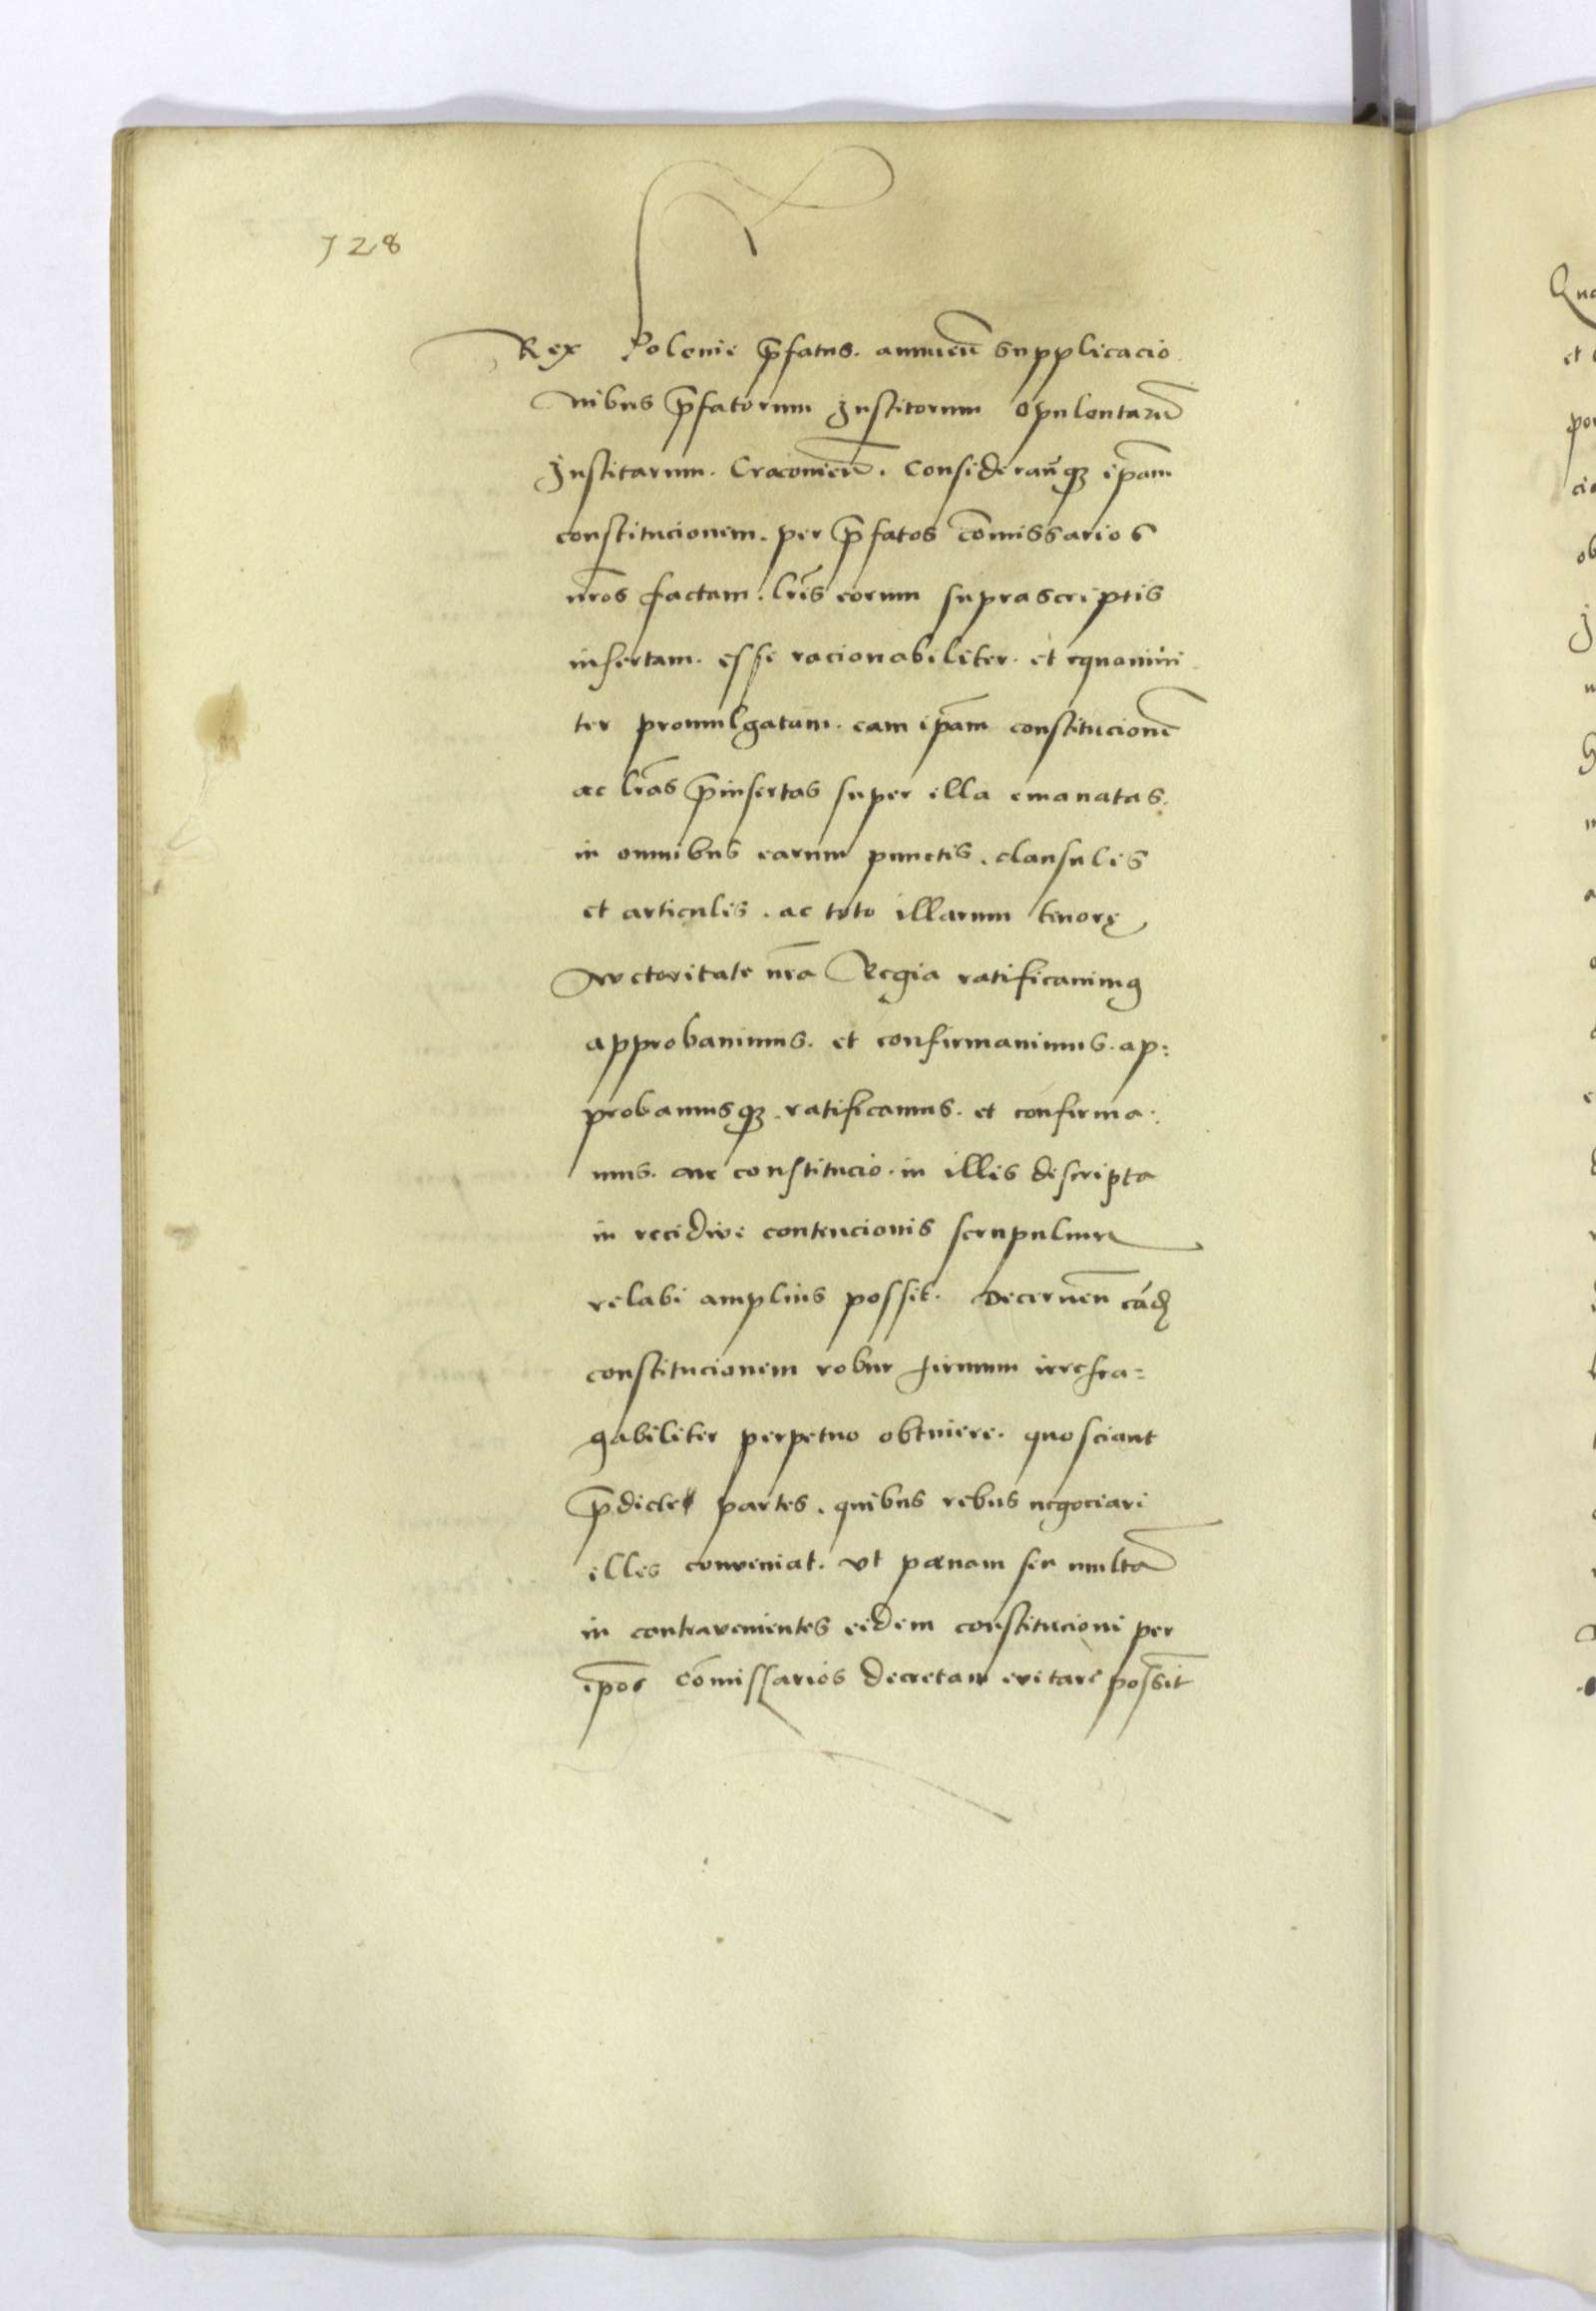 128
Rex Polonie p̄fatus. annuen̄ supplicacio
nibus p̄fatorum Institorum opulentarū
Institarum. Cracouien̄. Consideran̄qꝫ ip̄am
constitucionem. per p̄fatos cōmissarios
nr̄os factam. lr̄is eorum suprascriptis
insertam. esse racionabiliter. et equanimi
ter promulgatam. eam ip̄am constitucionē
ac lr̄as p̄insertas super illa emanatas.
in omnibus earum punctis. clausulis
et articulis. ac toto illarum tenorę
Auctoritate nr̄a Regia ratificauimꝰ
approbauimus. et confirmauimus. ap:
probamusqꝫ. ratificamus. et confirma:
mus. ne constitucio. in illis descripta
in recidiue contencionis scrupulum
relabi amplius possit. Decernen̄ eād
constitucionem robur firmum irrefra=
gabiliter perpetuo obtinere. quo sciant
p̄dicte partes. quibus rebus negociari
illis conueniat. vt pœnam seu multā
in contrauenientes eidem constitucioni per
ip̄os cōmissarios decretam euitare possīt